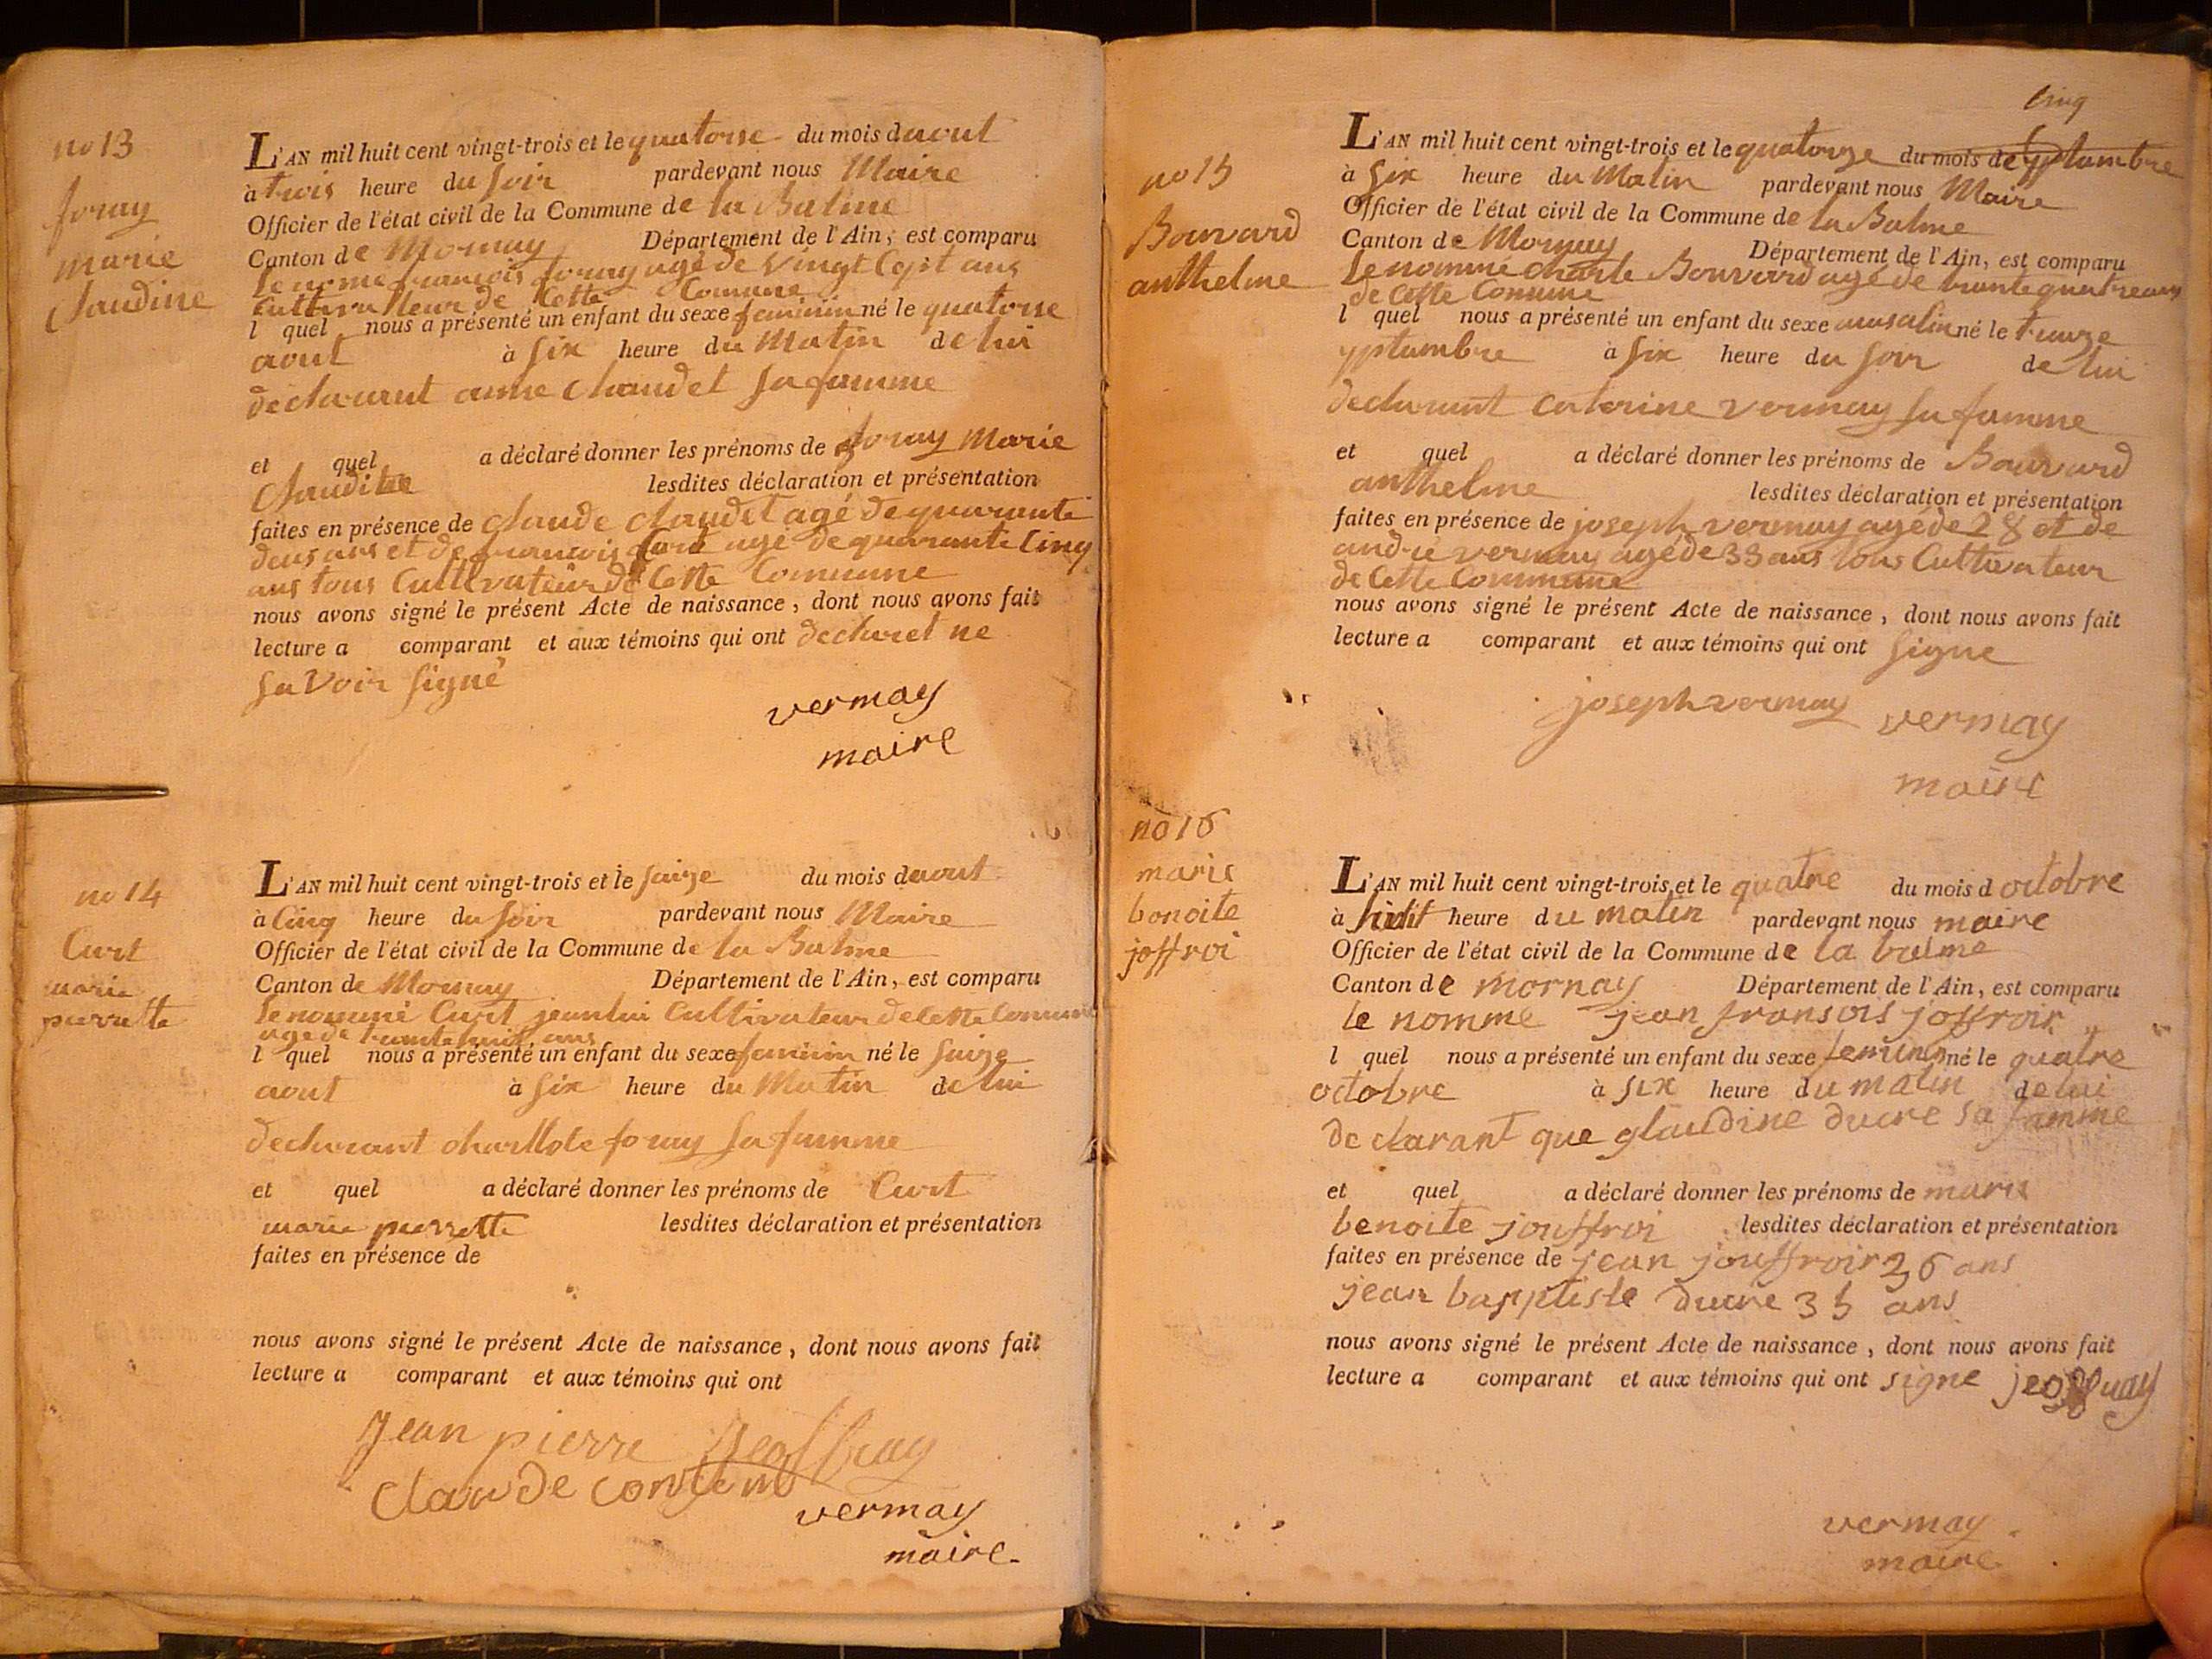 no 13
foray
marie
Claudine
L'AN mil huit cent vingt-trois et le quatorse du mois daout
à trois heure du soir pardevant nous Maire
Officier de l'état civil de la Commune de la Balme
Canton de Mornay Département de l'Ain, est comparu
le nomé francois foray agé de vingt Cept ans
Cultivatteur de Cette Comune
l quel nous a présenté un enfant du sexe feminin né le quatorse
aout à six heure du Matin de lui
declarant anne Chaudet sa famme
et quel a déclaré donner les prénoms de foray Marie
Claudine lesdites déclaration et présentation
faites en présence de Claude Claudet agé de quarante
deus ans et de francois agé de quarante Cinq
ans tous Cultivateur de Cette Comunne
nous avons signé le présent Acte de naissance, dont nous avons fait
lecture a comparant et aux témoins qui ont declaret ne
savoir signé
vermay
maire
no 14
Curt
marie
pierrette
L'AN mil huit cent vingt-trois et le saize du mois daout
à Cinq heure du soir pardevant nous Maire
Officier de l'état civil de la Commune de la Balme
Canton de Mornay Département de l'Ain, est comparu
le nommé Curt jeanlui Cultivateur de Cette Comune
age de trante huit ans
l quel nous a présenté un enfant du sexe feminin né le saize
aout à six heure du Matin de lui
declarant charllote foray sa famme
et quel a déclaré donner les prénoms de Curt
marie pierrette lesdites déclaration et présentation
faites en présence de
nous avons signé le présent Acte de naissance, dont nous avons fait
lecture a comparant et aux témoins qui ont
Jean pierre Jeoffray
Claude
vermay
maire.
Cinq
no 15
Bouvard
anthelme
L'AN mil huit cent vingt-trois et le quatorze du mois de septambre
à six heure du Matin pardevant nous Maire
Officier de l'état civil de la Commune de la Balme
Canton de Mornay Département de l'Ain, est comparu
le nommé charle Bouvard agé de trante quatre ans
de Cette Comune
l quel nous a présenté un enfant du sexe masculin né le traize
septambre à six heure du soir de lui
declarant Caterine vermay sa famme
et quel a déclaré donner les prénoms de Bouvard
anthelme lesdites déclaration et présentation
faites en présence de joseph vermay agé de 28 et de
andré vermay agé de 33 ans tous Cultivateur
de Cette Commune
nous avons signé le présent Acte de naissance, dont nous avons fait
lecture a comparant et aux témoins qui ont signe
joseph vermay vermay
maire
no 16
marie
benoite
joffroi
L'AN mil huit cent vingt-trois et le quatre du mois d octobre
à heure du matin pardevant nous maire
Officier de l'état civil de la Commune de la balme
Canton de mornay Département de l'Ain, est comparu
le nomme jean fransois joffroir
l quel nous a présenté un enfant du sexe feminin né le quatre
octobre à six heure du matin de lui
declarant que glaudine ducre sa famme
et quel a déclaré donner les prénoms de marie
benoite jouffroi lesdites déclaration et présentation
faites en présence de jean jouffroir 26 ans
jean baptiste ducre 35 ans
nous avons signé le présent Acte de naissance, dont nous avons fait
lecture a comparant et aux témoins qui ont signe
vermay
maire